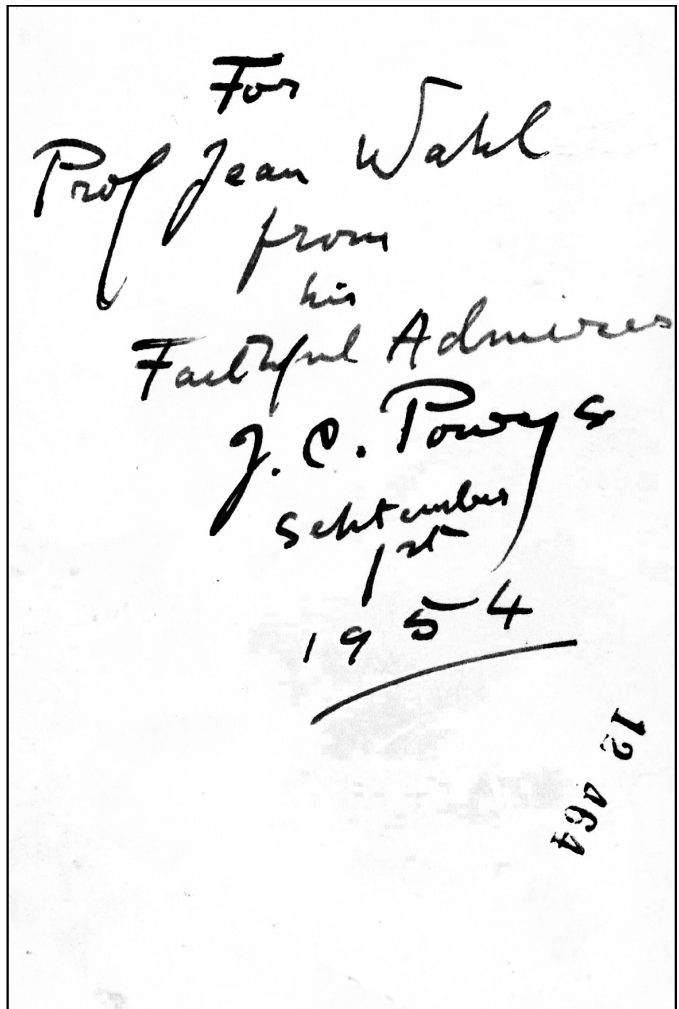 For
Prof Jean Wahl
from
his
Faithful Admirer
J. C. Powys
September
1st
1954
12 464